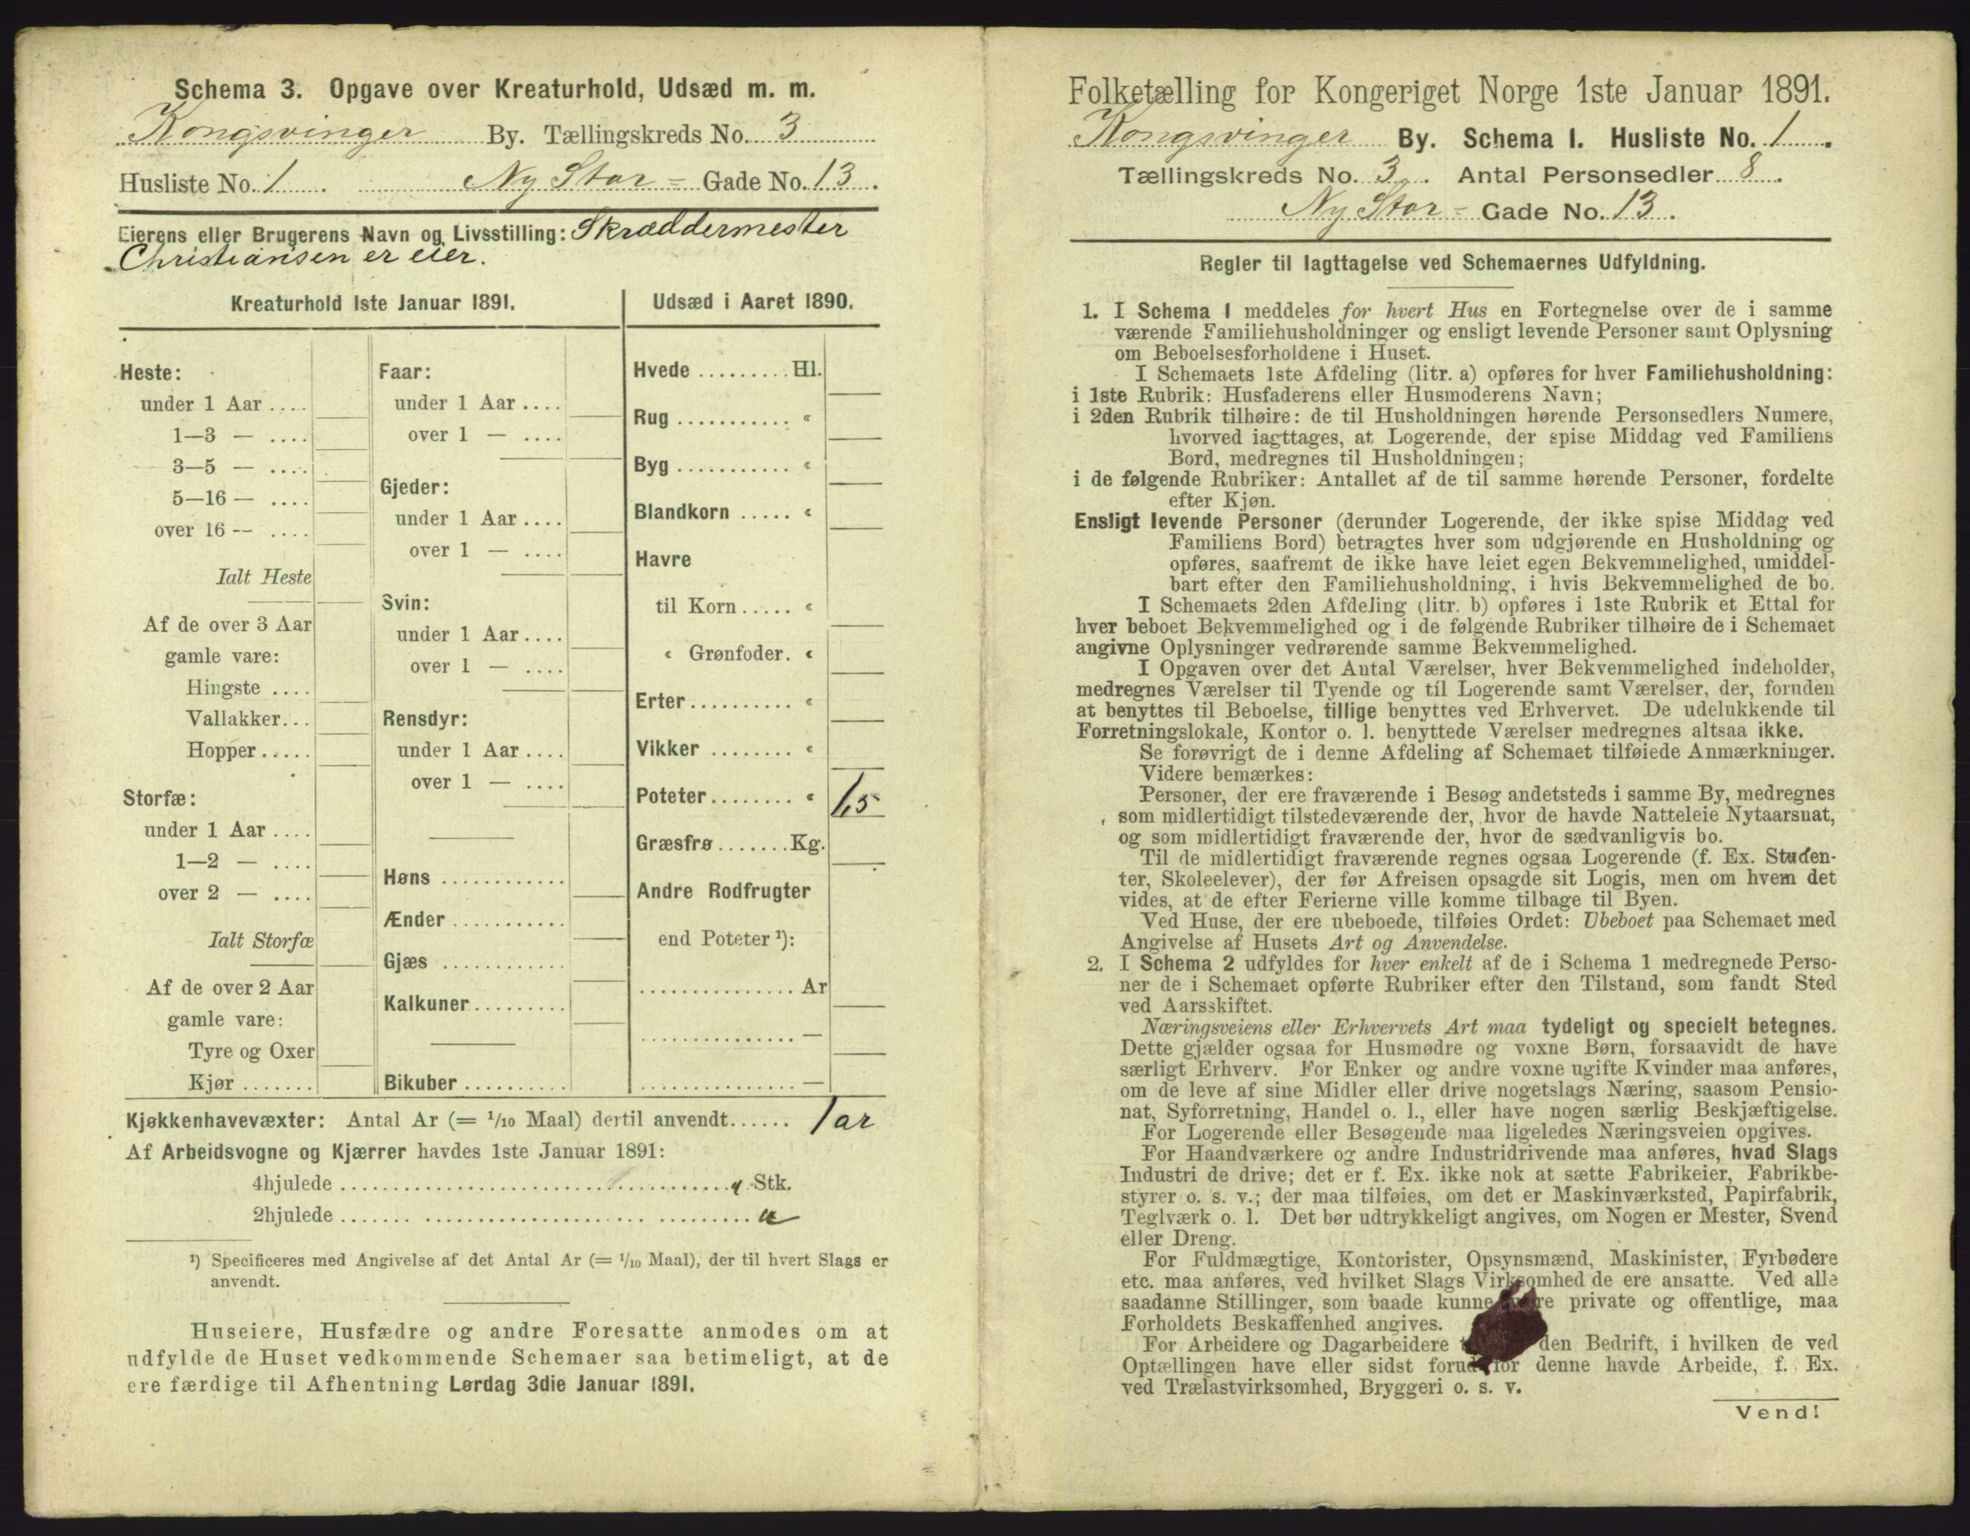 Schema 3. Opgave over Kreaturhold, Udsæd m. m.
Kongsvinger By. Tællingskreds No. 3
Husliste No. 1 Ny Stor- Gade No. 13.
Eierens eller Brugerens Navn og Livsstilling: Skræddermester
Christiansen er eier.
Kreaturhold 1ste Januar 1891.
Heste:
under 1 Aar ....
1—3 — ....
3—5 — ....
5—16 — ....
over 16 — ....
Ialt Heste
Af de over 3 Aar
gamle vare:
Hingste ....
Vallakker...
Hopper.....
Storfæ:
under 1 Aar ....
1—2 — ....
over 2 — ....
Ialt Storfæ
Af de over 2 Aar
gamle vare:
Tyre og Oxer
Kjør.......
Faar:
under 1 Aar ....
over 1 — ....
Gjeder:
under 1 Aar ....
over 1 — ....
Svin:
under 1 Aar ....
over 1 — ....
Rensdyr:
under 1 Aar ....
over 1 — ....
Høns ............
Ænder...........
Gjæs ............
Kalkuner.........
Bikuber..........
Udsæd i Aaret 1890.
Hvede.........Hl.
Rug........... "
Byg........... "
Blandkorn ..... "
Havre
til Korn..... "
" Grønfoder. "
Erter.......... "
Vikker ........ "
Poteter........ " 1,5
Græsfrø.......Kg.
Andre Rodfrugter
end Poteter ¹):
...............Ar
............... —
............... —
Kjøkkenhavevæxter: Antal Ar (= 1/10 Maal) dertil anvendt...... 1 ar
Af Arbeidsvogne og Kjærrer havdes 1ste Januar 1891:
4hjulede ........................................ " Stk.
2hjulede ........................................ "
¹) Specificeres med Angivelse af det Antal Ar (= 1/10 Maal), der til hvert Slags er
anvendt.
Huseiere, Husfædre og andre Foresatte anmodes om at
udfylde de Huset vedkommende Schemaer saa betimeligt, at de
ere færdige til Afhentning Lørdag 3die Januar 1891.
Folketælling for Kongeriget Norge 1ste Januar 1891.
Kongsvinger By. Schema I. Husliste No. 1.
Tællingskreds No. 3. Antal Personsedler 8.
Ny Stor- Gade No. 13.
Regler til Iagttagelse ved Schemaernes Udfyldning.
1. I Schema 1 meddeles for hvert Hus en Fortegnelse over de i samme
værende Familiehusholdninger og ensligt levende Personer samt Oplysning
om Beboelsesforholdene i Huset.
I Schemaets 1ste Afdeling (litr. a) opføres for hver Familiehusholdning:
i 1ste Rubrik: Husfaderens eller Husmoderens Navn;
i 2den Rubrik tilhøire: de til Husholdningen hørende Personsedlers Numere,
hvorved iagttages, at Logerende, der spise Middag ved Familiens
Bord, medregnes til Husholdningen;
i de følgende Rubriker: Antallet af de til samme hørende Personer, fordelte
efter Kjøn.
Ensligt levende Personer (derunder Logerende, der ikke spise Middag ved
Familiens Bord) betragtes hver som udgjørende en Husholdning og
opføres, saafremt de ikke have leiet egen Bekvemmelighed, umiddel-
bart efter den Familiehusholdning, i hvis Bekvemmelighed de bo.
I Schemaets 2den Afdeling (litr. b) opføres i 1ste Rubrik et Ettal for
hver beboet Bekvemmelighed og i de følgende Rubriker tilhøire de i Schemaet
angivne Oplysninger vedrørende samme Bekvemmelighed.
I Opgaven over det Antal Værelser, hver Bekvemmelighed indeholder,
medregnes Værelser til Tyende og til Logerende samt Værelser, der, foruden
at benyttes til Beboelse, tillige benyttes ved Erhvervet. De udelukkende til
Forretningslokale, Kontor o. l. benyttede Værelser medregnes altsaa ikke.
Se forøvrigt de i denne Afdeling af Schemaet tilføiede Anmærkninger.
Videre bemærkes:
Personer, der ere fraværende i Besøg andetsteds i samme By, medregnes
som midlertidigt tilstedeværende der, hvor de havde Natteleie Nytaarsnat,
og som midlertidigt fraværende der, hvor de sædvanligvis bo.
Til de midlertidigt fraværende regnes ogsaa Logerende (f. Ex. Studen-
ter, Skoleelever), der før Afreisen opsagde sit Logis, men om hvem det
vides, at de efter Ferierne ville komme tilbage til Byen.
Ved Huse, der ere ubeboede, tilføies Ordet: Ubeboet paa Schemaet med
Angivelse af Husets Art og Anvendelse.
2. I Schema 2 udfyldes for hver enkelt af de i Schema 1 medregnede Perso-
ner de i Schemaet opførte Rubriker efter den Tilstand, som fandt Sted
ved Aarsskiftet.
Næringsveiens eller Erhvervets Art maa tydeligt og specielt betegnes.
Dette gjælder ogsaa for Husmødre og voxne Børn, forsaavidt de have
særligt Erhverv. For Enker og andre voxne ugifte Kvinder maa anføres,
om de leve af sine Midler eller drive nogetslags Næring, saasom Pensio-
nat, Syforretning, Handel o. l., eller have nogen særlig Beskjæftigelse.
For Logerende eller Besøgende maa ligeledes Næringsveien opgives.
For Haandværkere og andre Industridrivende maa anføres, hvad Slags
Industri de drive; det er f. Ex. ikke nok at sætte Fabrikeier, Fabrikbe-
styrer o. s. v.; der maa tilføies, om det er Maskinværksted, Papirfabrik,
Teglværk o. l. Det bør udtrykkeligt angives, om Nogen er Mester, Svend
eller Dreng.
For Fuldmægtige, Kontorister, Opsynsmænd, Maskinister, Fyrbødere
etc. maa anføres, ved hvilket Slags Virksomhed de ere ansatte. Ved alle
saadanne Stillinger, som baade kunne være private og offentlige, maa
Forholdets Beskaffenhed angives.
For Arbeidere og Dagarbeidere den Bedrift, i hvilken de ved
Optællingen have eller sidst forud for denne havde Arbeide, f. Ex.
ved Trælastvirksomhed, Bryggeri o. s. v.
Vend!